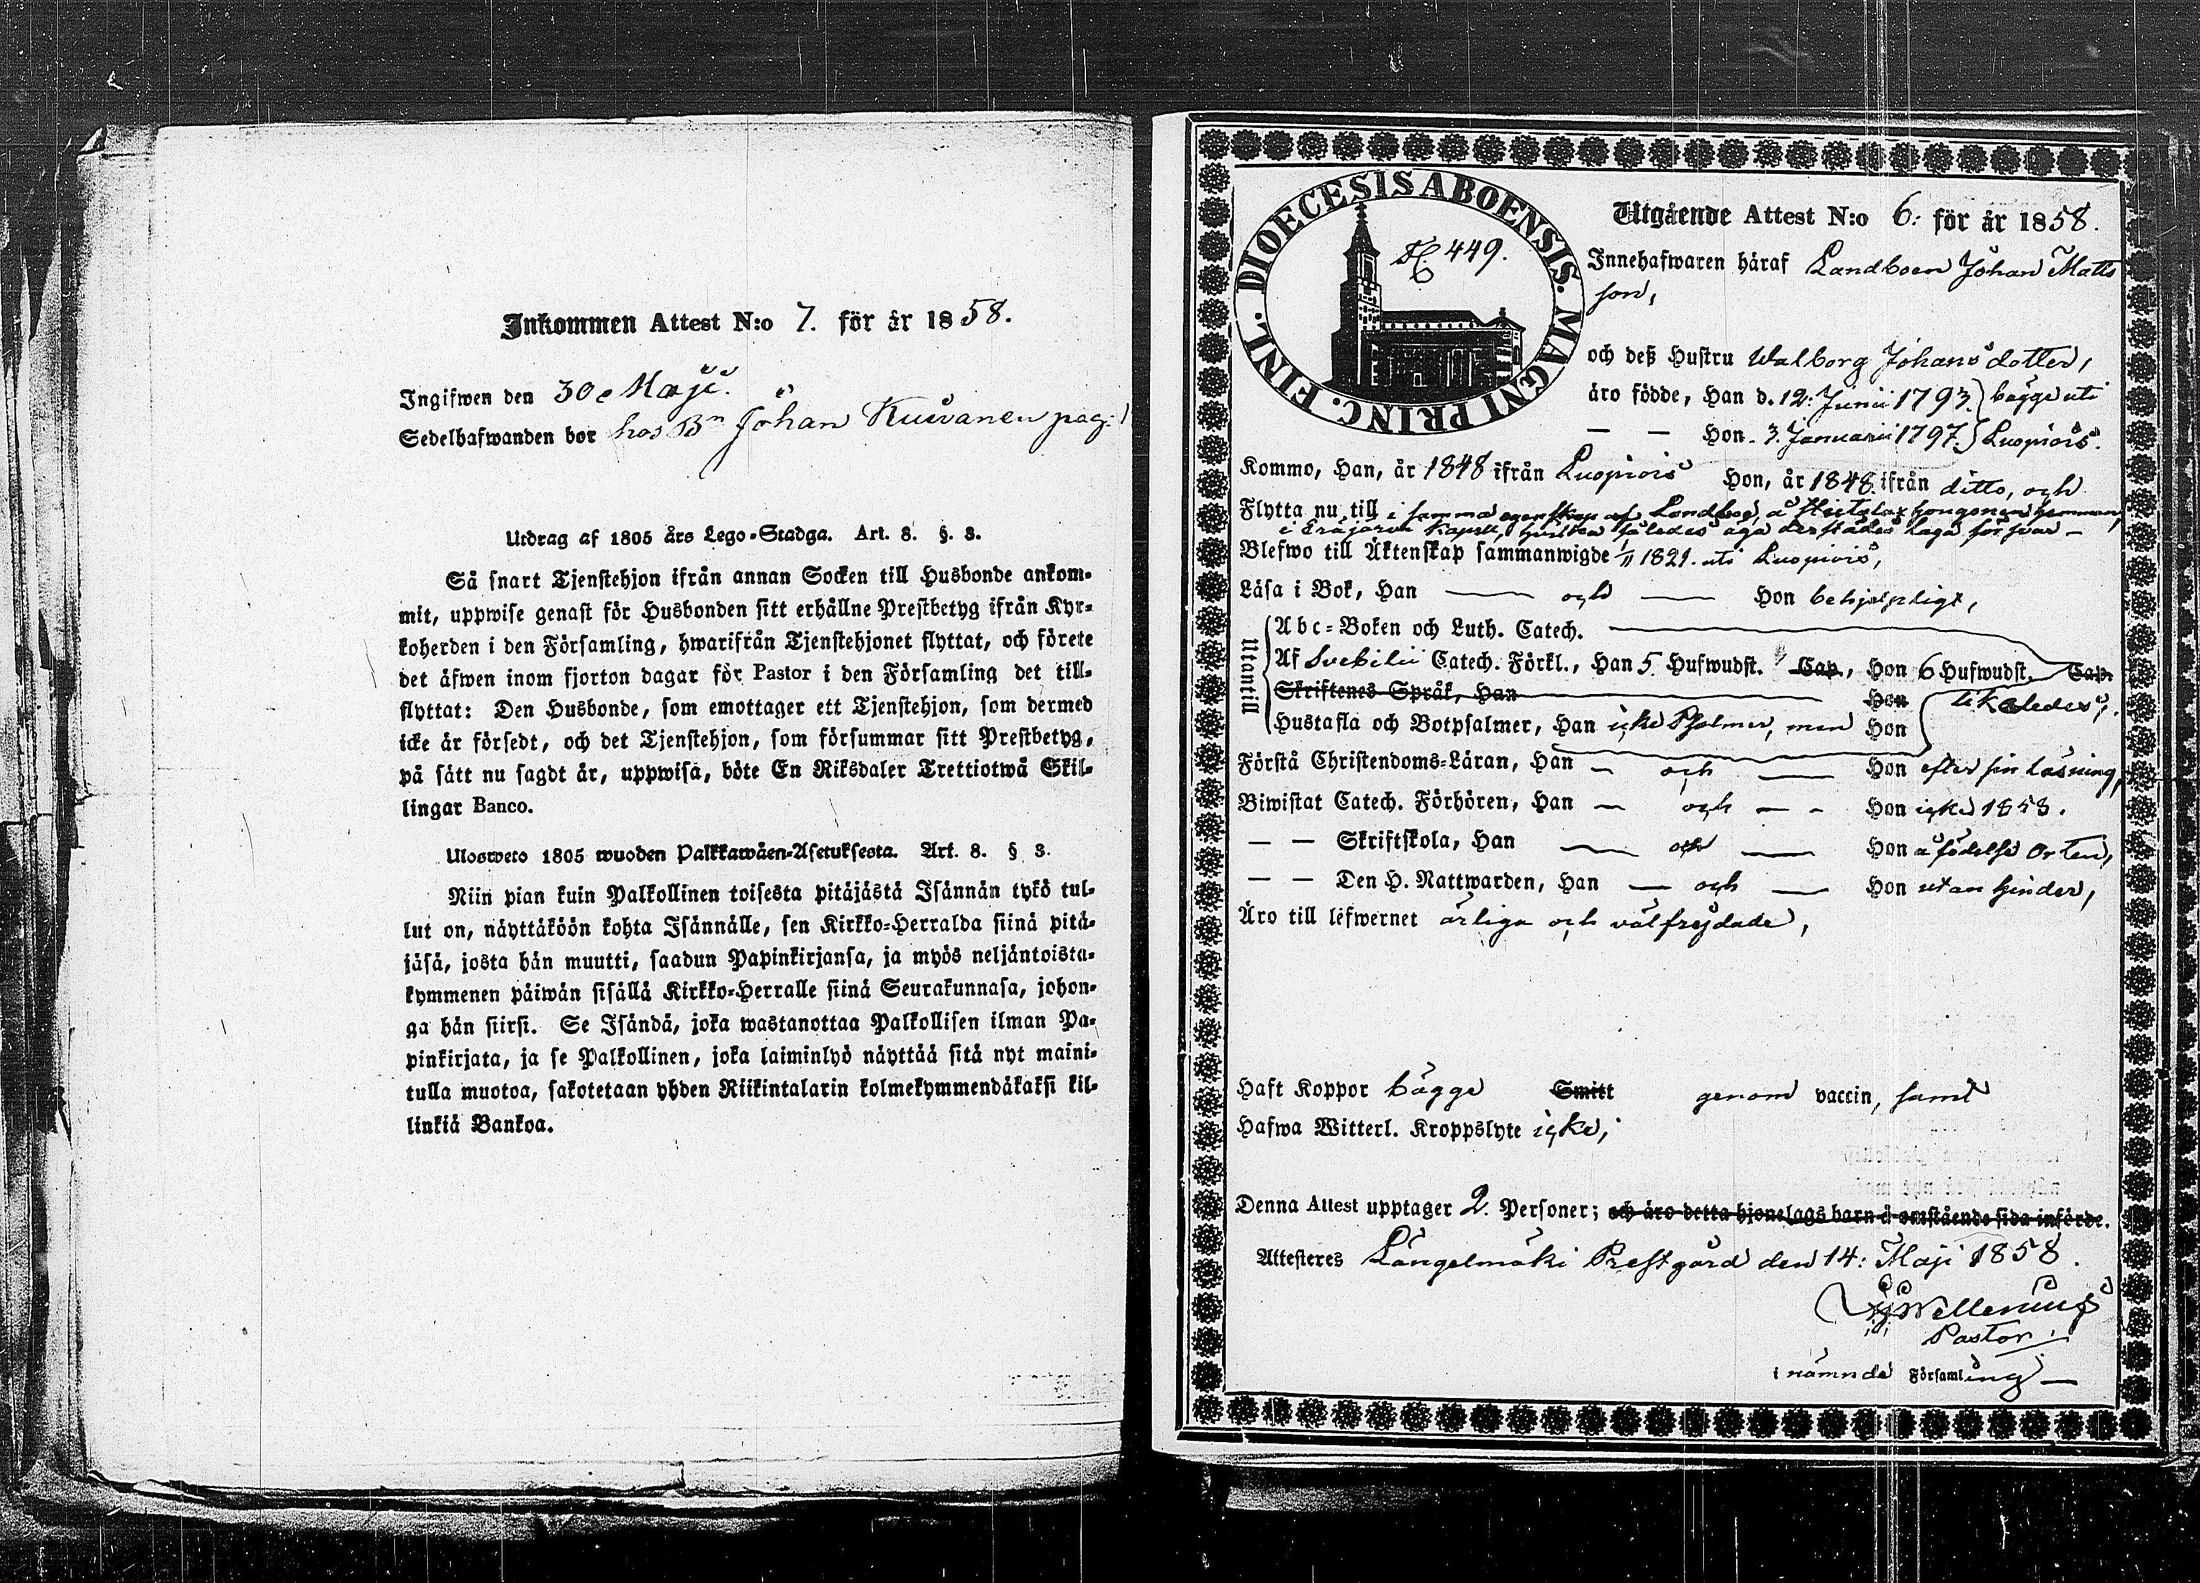 Inkommen Attest N:o 7. för år 1858.
Ingifwen den 30 Maji.
Sedelhafwanden bor hos Bn Johan Kuivanen pag:
Utdrag af 1805 års Lego-Stadga. Art. 8. §. 3.
Så snart Tjenstehjon ifrån annan Socken till Husbonde ankom-
mit, uppwise genast för Husbonden sitt erhållne Prestbetyg ifrån Kyr-
koherden i den Församling, hwarifrån Tjenstehjonet flyttat, och förete
det äfwen inom fjorton dagar för Pastor i den Församling det till-
flyttat: Den Husbonde, som emottager ett Tjenstehjon, som dermed
icke är försedt, och det Tjenstehjon, som försummar sitt Prestbetyg,
på sätt nu sagdt är, uppwisa, böte En Riksdaler Trettiotwå Skil-
lingar Banco.
Ulosweto 1805 wuoden Palkkawäen-Asetuksesta. Art. 8. § 3.
Niin pian kuin Palkollinen toisesta pitäjästä Isännän tykö tul-
lut on, näyttäköön kohta Isännälle, sen Kirkko-Herralda siinä pitä-
jäsä, josta hän muutti, saadun Papinkirjansa, ja myös neljäntoista-
kymmenen päiwän sisällä Kirkko-Herralle siinä Seurakunnasa, johon-
ga hän siirsi. Se Isändä, joka wastanottaa Palkollisen ilman Pa-
pinkirjata, ja se Palkollinen, joka laiminlyö näyttää sitä nyt maini-
tulla muotoa, sakotetaan yhden Riikintalarin kolmekymmendäkaksi kil-
linkiä Bankoa.
DIOECESIS ABOENSIS. MAGNI PRINC. FINL.
449.
Utgående Attest N:o 6: för år 1858.
Innehafwaren häraf Landboen Johan Matts
son,
och deß Hustru Walborg Johansdotter,
äro födde, Han d. 12: Junii 1793. bägge uti
— — Hon 3. Januarii 1797. Luopiois.
Kommo, Han, år 1848 ifrån Luopiois Hon, år 1848 ifrån ditto, och
Flytta nu till i samma egenskap af Landboe, å hemman,
i Eräjärvi Kapell, hvilka således äga derstädes laga försvar —
Blefwo till Äktenskap sammanwigde 1/11 1821. uti Luopiois,
Läsa i Bok, Han — och — Hon behjelpligt,
Utantill
Abc-Boken och Luth. Catech.
Af Svebilii Catech. Förkl., Han 5 Hufwudst. Cap., Hon 6 Hufwudst. Cap.
Skriftenes Språk, Han — Hon likaledes,
Hustafla och Botpsalmer, Han icke Psalmer, men Hon
Förstå Christendoms-Läran, Han — och — Hon efter sin läsning,
Biwistat Catech. Förhören, Han — och — Hon icke 1858.
— — Skriftskola, Han — och — Hon å födelse Orten,
— — Den H. Nattwarden, Han — och — Hon utan hinder,
Äro till lefwernet ärliga och välfrejdade,
Haft Koppor bägge Smitt genom vaccin, samt
Hafwa Witterl. Kroppslyte icke,
Denna Attest upptager 2. Personer; och äro detta hjonelags barn å omstående sida införde.
Attesteres Längelmäki Prestgård den 14: Maji 1858.
Wellenius
Pastor
i nämnde Församling —